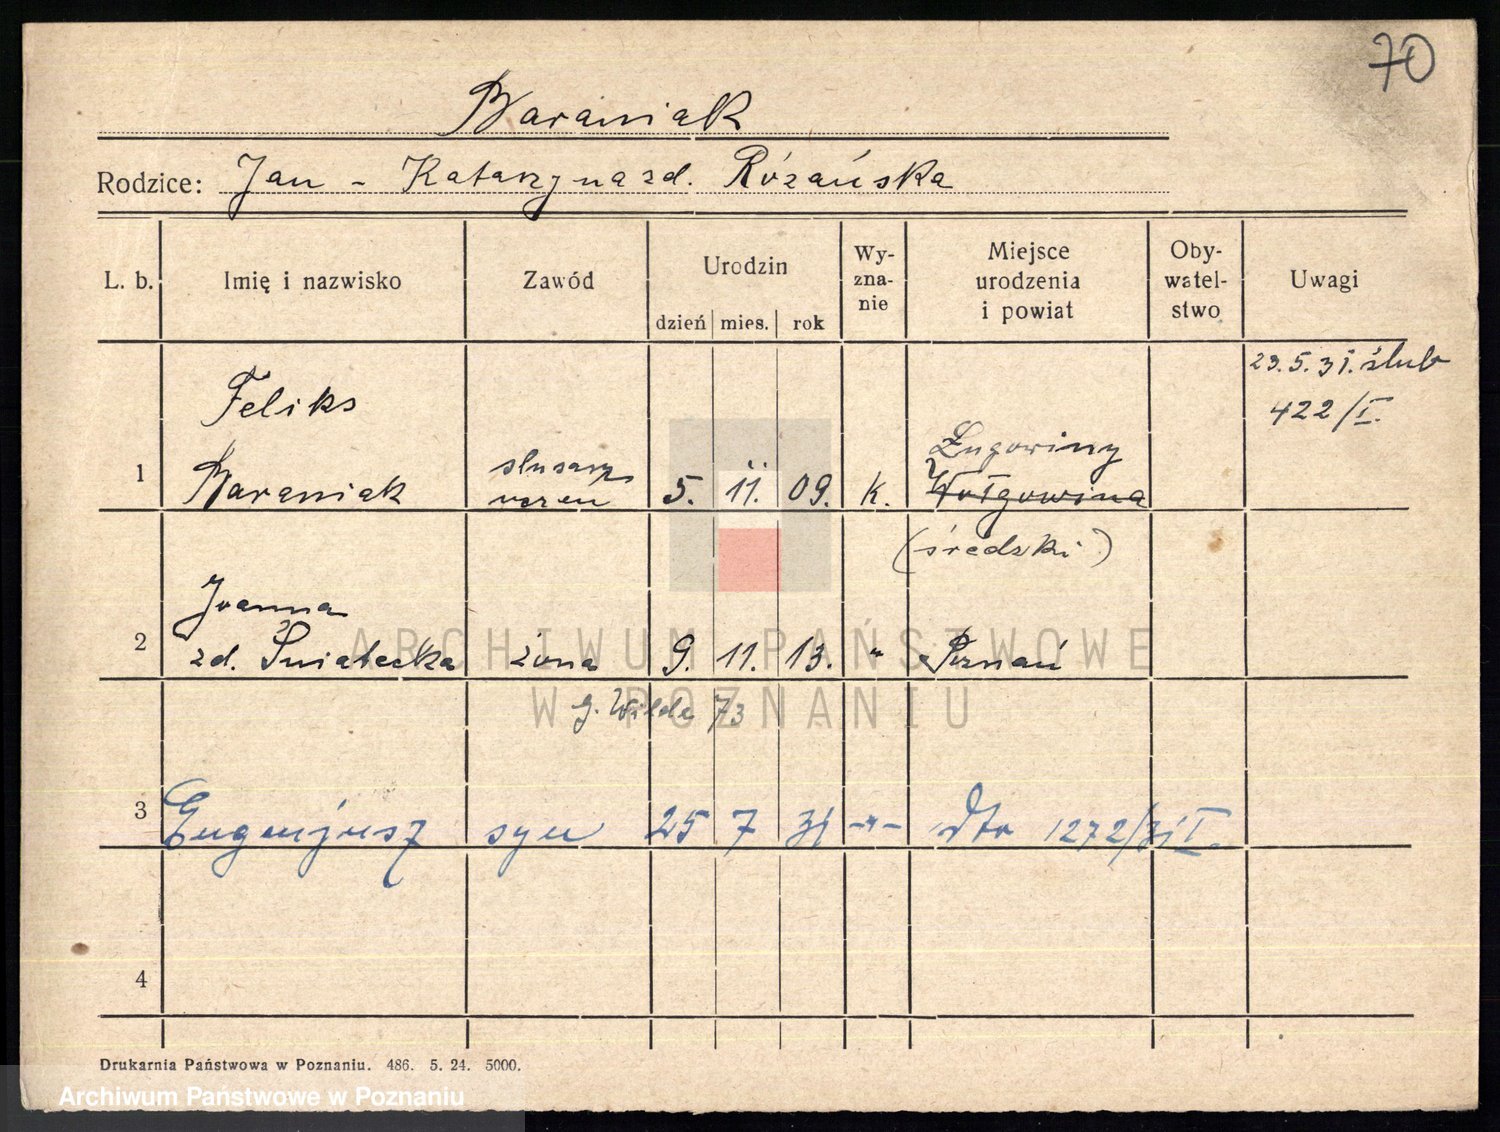 70
Baraniak
Rodzice: Jan - Katarzyna zd. Różańska
L. b. Imię i nazwisko Zawód Urodzin dzień mies. rok Wy-zna-nie Miejsce urodzenia i powiat Oby-watel-stwo Uwagi
23.5.31. ślub
422/I.
Feliks
Ługowiny
1 Baraniak ślusarz uczeń 5. 11. 09. k. Wołgowina
(średzki)
Joanna
2 zd. Świątecka żona 9. 11. 13. " Poznań
G. Wilda 73
3 Eugenjusz syn 25 7 31 -"- dto 1272/31 I.
4
ARCHIWUM PAŃSTWOWE
W POZNANIU
Drukarnia Państwowa w Poznaniu. 486. 5. 24. 5000.
Archiwum Państwowe w Poznaniu